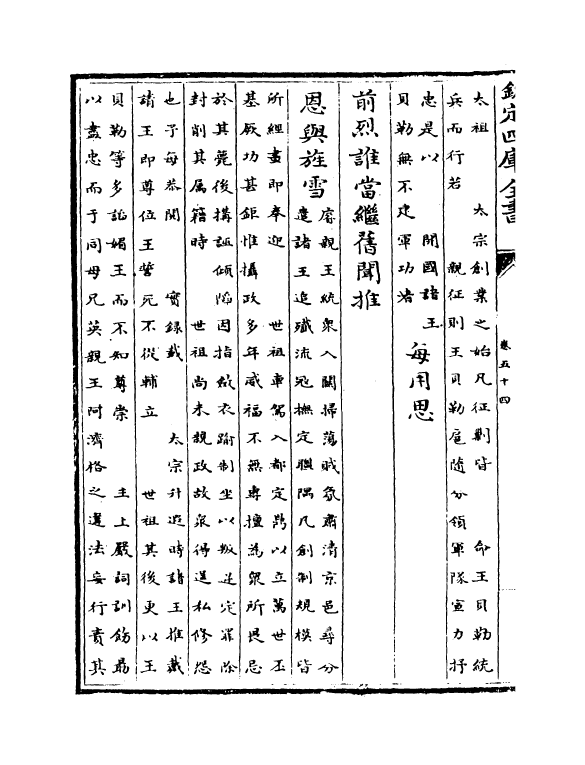 欽定四庫全書
卷五十四
太祖　太宗創業之始凡征剿皆　命王貝勒統
兵而行若　親征則王貝勒扈隨分領軍隊宣力抒
忠是以　開國諸王
貝勒無不建軍功者
每用思
前烈誰當繼舊聞推
恩與旌雪
睿親王統衆入關掃蕩賊氛肅清京邑尋分
遣諸王追殲流寇撫定疆隅凡創制規模皆
所經畫即奉迎　世祖車駕入都定鼎以立萬世丕
基厥功甚鉅惟攝政多年威福不無專擅為衆所畏忌
於其薨後搆誣傾陷因指斂衣踰制坐以叛逆定罪除
封削其属籍時　世祖尚未親政故衆得逞私修怨
也予每恭閱　實錄載　太宗升遐時諸王推戴
請王即尊位王誓死不從輔立　世祖其後更以王
貝勒等多諂媚王而不知尊崇　主上嚴詞訓飭勗
以盡忠而于同母兄英親王阿濟格之違法妄行責其